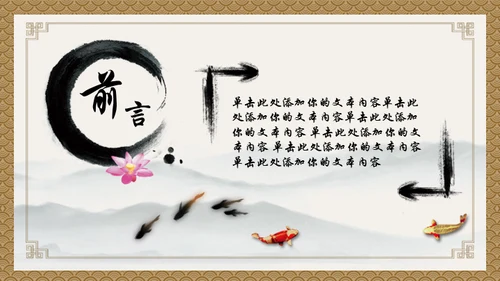 前言
单击此处添加你的文本内容单击此
处添加你的文本内容单击此处添加
你的文本内容单击此处添加你的文
本内容单击此处添加你的文本内容
单击此处添加你的文本内容